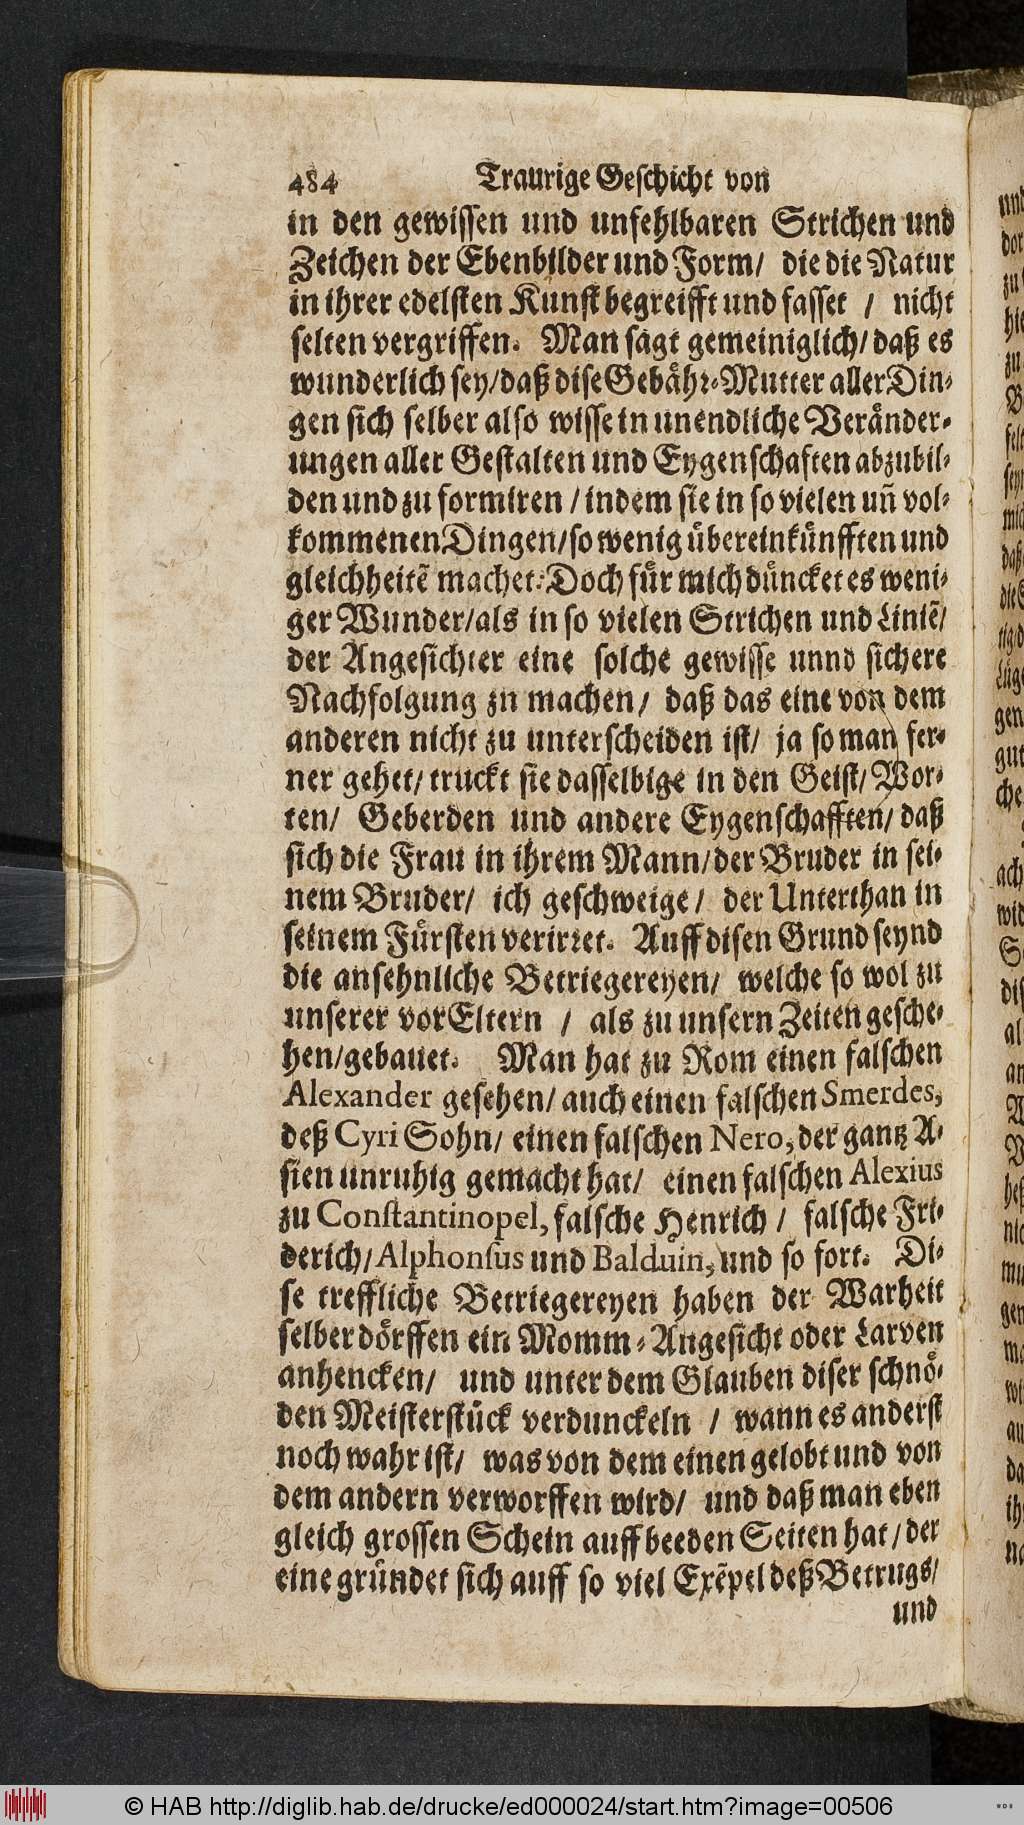 484 Traurige Geschicht von
in den gewissen und unfehlbaren Strichen und
Zeichen der Ebenbilder und Form/ die die Natur
in ihrer edelsten Kunst begreifft und fasset / nicht
selten vergriffen. Man sagt gemeiniglich/ daß es
wunderlich sey/daß dise Gebähr-Mutter aller Din-
gen sich selber also wisse in unendliche Veränder-
ungen aller Gestalten und Eygenschaften abzubil-
den und zu formiren / indem sie in so vielen uñ vol-
kommenen Dingen/so wenig übereinkünfften und
gleichheitẽ machet. Doch für mich düncket es weni-
ger Wunder/als in so vielen Strichen und Liniẽ/
der Angesichter eine solche gewisse unnd sichere
Nachfolgung zu machen/ daß das eine von dem
anderen nicht zu unterscheiden ist/ ja so man fer-
ner gehet/ truckt sie dasselbige in den Geist/ Wor-
ten/ Geberden und andere Eygenschafften/ daß
sich die Frau in ihrem Mann/der Bruder in sei-
nem Bruder/ ich geschweige/ der Unterthan in
seinem Fürsten verirret. Auff disen Grund seynd
die ansehnliche Betriegereyen/ welche so wol zu
unserer vorEltern / als zu unsern Zeiten gesche-
hen/gebauet. Man hat zu Rom einen falschen
Alexander gesehen/ auch einen falschen Smerdes,
deß Cyri Sohn/ einen falschen Nero, der gantz A-
sien unruhig gemacht hat/ einen falschen Alexius
zu Constantinopel, falsche Henrich / falsche Fri-
derich/ Alphonsus und Balduin, und so fort. Di-
se treffliche Betriegereyen haben der Warheit
selber dörffen ein Momm-Angesicht oder Larven
anhencken/ und unter dem Glauben diser schnö-
den Meisterstück verdunckeln / wann es anderst
noch wahr ist/ was von dem einen gelobt und von
dem andern verworffen wird/ und daß man eben
gleich grossen Schein auff beeden Seiten hat/ der
eine gründet sich auff so viel Exẽpel deß Betrugs/
und
© HAB http://diglib.hab.de/drucke/ed000024/start.htm?image=00506